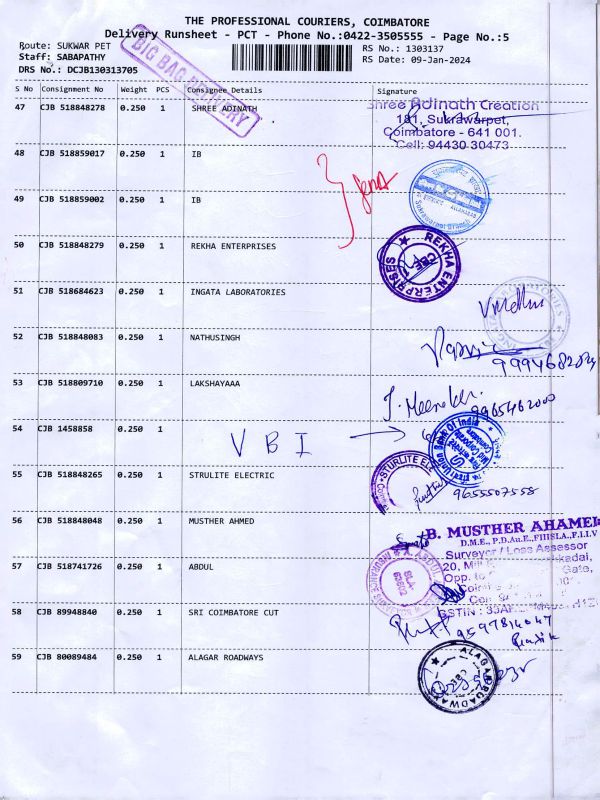 THE PROFESSIONAL COURIERS, COIMBATORE
Delivery Runsheet - PCT - Phone No.:0422-3505555 - Page No.:5
Route: SUKWAR PET
Staff: SABAPATHY
DRS No.: DCJB130313705
RS No.: 1303137
RS Date: 09-Jan-2024
BIG BAG DELIVERY
S No Consignment No Weight PCS Consignee Details Signature
47 CJB 518848278 0.250 1 SHREE ADINATH
Shree Adinath Creation
181, Sukrawarpet,
Coimbatore - 641 001.
Cell: 94430 30473
48 CJB 518859017 0.250 1 IB
49 CJB 518859002 0.250 1 IB
50 CJB 518848279 0.250 1 REKHA ENTERPRISES
REKHA ENTERPRISES
CBE
51 CJB 518684623 0.250 1 INGATA LABORATORIES
52 CJB 518848083 0.250 1 NATHUSINGH
53 CJB 518809710 0.250 1 LAKSHAYAAA
J. Meenak
9965462000
54 CJB 1458858 0.250 1
VBI →
Union Bank Of India
55 CJB 518848265 0.250 1 STRULITE ELECTRIC
STURLITE ELE
9655507558
56 CJB 518848048 0.250 1 MUSTHER AHMED
B. MUSTHER AHAMED
D.M.E., P.D.Au.E., FIIISLA., F.I.I.V
Surveyor / Loss Assessor
57 CJB 518741726 0.250 1 ABDUL
20, Mill
kadai,
Opp. to
Gate,
GSTIN : 33A
58 CJB 89948840 0.250 1 SRI COIMBATORE CUT
9597814047
59 CJB 80089484 0.250 1 ALAGAR ROADWAYS
ALAGAR ROADWAYS